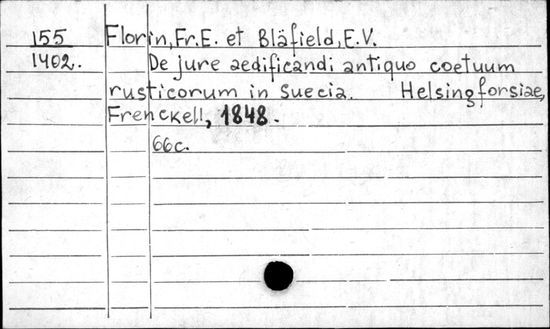 155 Florin, Fr. E. et Bläfield, E. V.
1402. De jure aedificandi antiquo coetuum
rusticorum in Suecia. Helsingforsiae,
Frenckell, 1848.
66c.